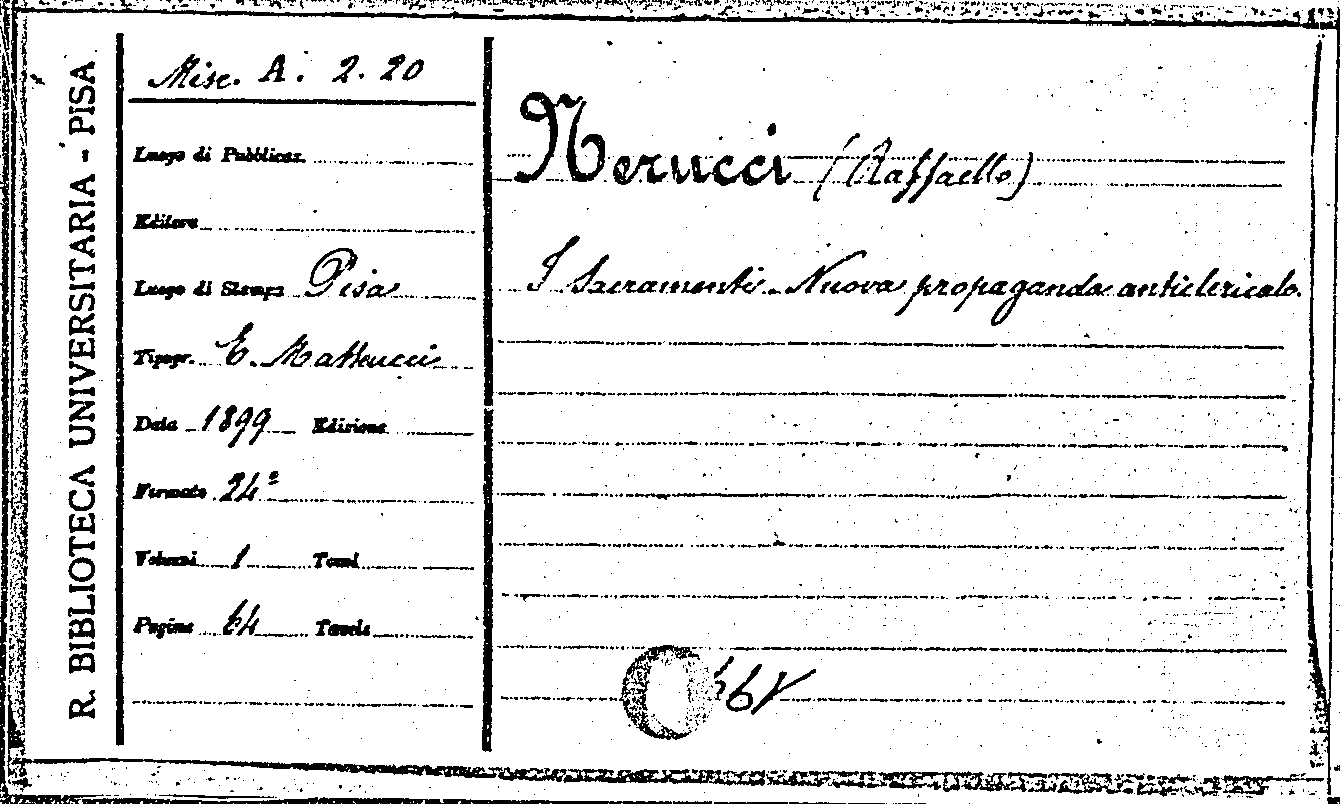 R. BIBLIOTECA UNIVERSITARIA - PISA
Misc. A. 2. 20
Luogo di Pubblicaz.
Editore
Luogo di Stampa Pisa
Tipogr. E. Matteucci
Data 1899 Edizione
Formato 24º
Volumi 1 Tomi
Pagine 64 Tavole
Nerucci (Raffaello)
I Sacramenti. Nuova propaganda anticlericale.